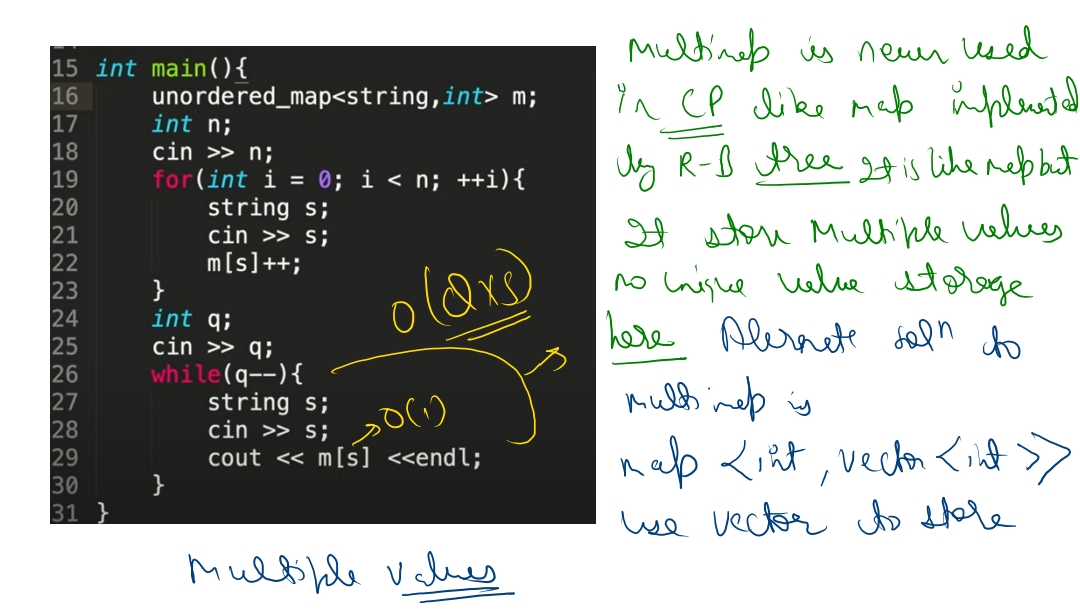 15 int main(){
16 unordered_map<string,int> m;
17 int n;
18 cin >> n;
19 for(int i = 0; i < n; ++i){
20 string s;
21 cin >> s;
22 m[s]++;
23 }
24 int q;
25 cin >> q;
26 while(q--){
27 string s;
28 cin >> s;
29 cout << m[s] <<endl;
30 }
31 }
O(Q×S)
→O(1)
Multimap is never used
in CP like map implemented
by R-B tree It is like map but
It store Multiple values
no unique value storage
here Alternate solⁿ to
multimap is
map <int, vector<int>>
use vector to store
Multiple values